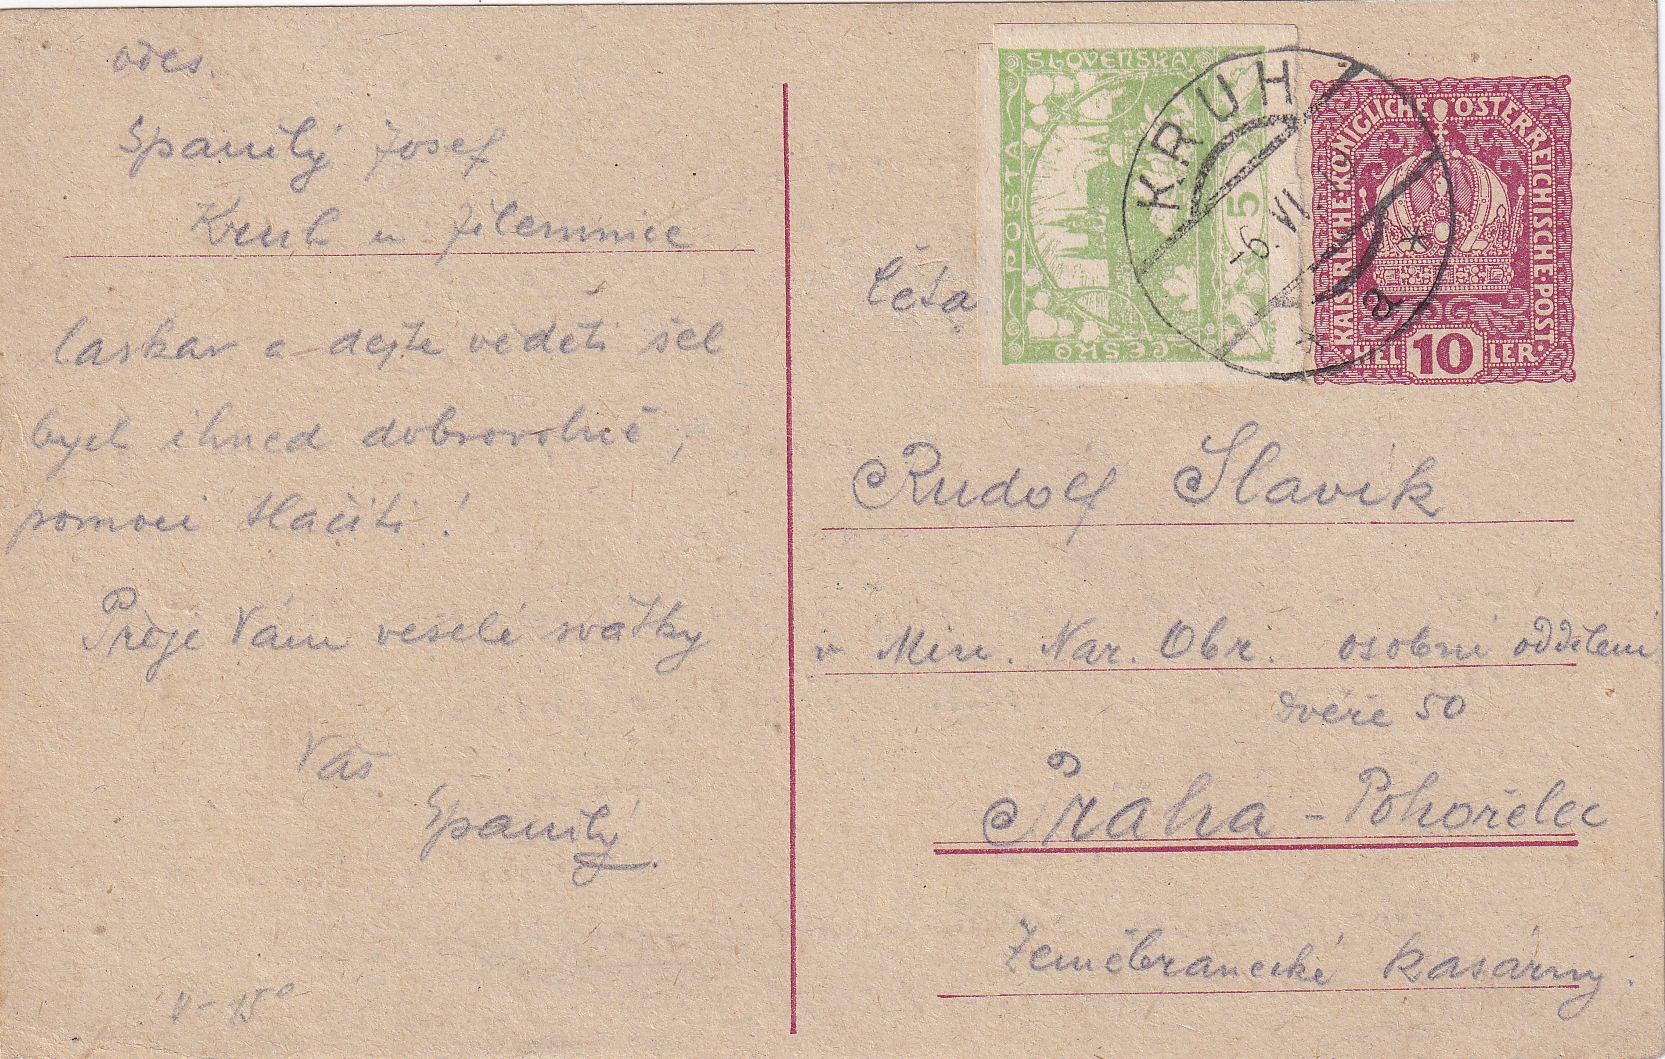 odes.
Spanilý Josef
Kruh u Jilemnice
laskav a dejte věděti šel
bych ihned dobrovolně,
pomoci tlačiti!
Přeje Vám veselé svátky
Váš
Spanilý
POSTA
ČESKO
SLOVENSKA
5
KRUH
-6.VI.
* a *
KAISERLICHE·KÖNIGLICHE ÖSTERREICHISCHE·POST
HEL 10 LER
Četa
Rudolf Slavík
v Min. Nar. Obr. osobní oddělení
dvéře 50
Praha - Pohořelec
Zeměbranecké kasárny.